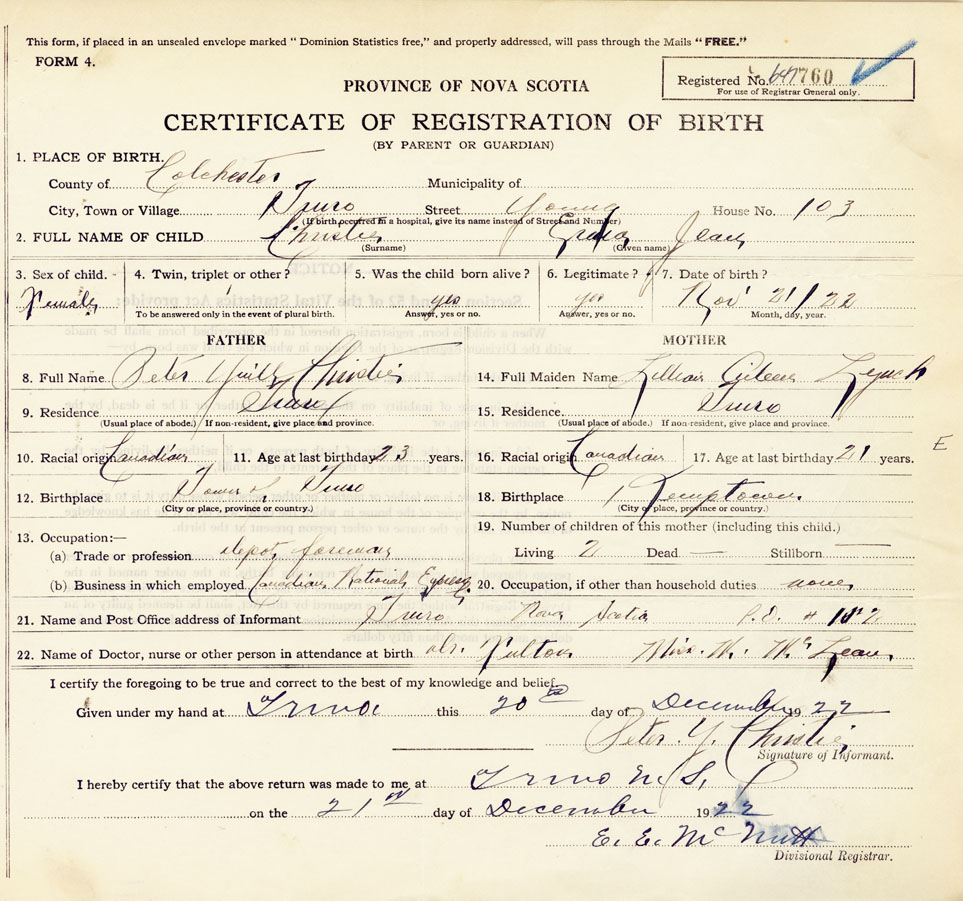 This form, if placed in an unsealed envelope marked "Dominion Statistics free," and properly addressed, will pass through the Mails "FREE."
FORM 4.
Registered No. 760
For use of Registrar General only.
PROVINCE OF NOVA SCOTIA
CERTIFICATE OF REGISTRATION OF BIRTH
(BY PARENT OR GUARDIAN)
1. PLACE OF BIRTH.
County of Colchester Municipality of
City, Town or Village Truro Street Young House No. 103
(If birth occurred in a hospital, give its name instead of Street and Number)
2. FULL NAME OF CHILD Christie Jean
(Surname) (Given name)
3. Sex of child. - 4. Twin, triplet or other? 5. Was the child born alive? 6. Legitimate? 7. Date of birth?
Female yes yes Nov 21/22
To be answered only in the event of plural birth. Answer, yes or no. Answer, yes or no. Month, day, year.
FATHER MOTHER
8. Full Name Peter Christie 14. Full Maiden Name Lillian Aileen Lynch
9. Residence Truro 15. Residence. Truro
(Usual place of abode.) If non-resident, give place and province. (Usual place of abode.) If non-resident, give place and province.
10. Racial origin Canadian 11. Age at last birthday 23 years. 16. Racial origin Canadian 17. Age at last birthday 21 years. E
12. Birthplace Town of Truro 18. Birthplace Kemptown
(City or place, province or country.) (City or place, province or country.)
13. Occupation:— 19. Number of children of this mother (including this child.)
(a) Trade or profession depot foreman Living 2 Dead — Stillborn —
(b) Business in which employed Canadian National Express 20. Occupation, if other than household duties none
21. Name and Post Office address of Informant Truro Nova Scotia
22. Name of Doctor, nurse or other person in attendance at birth dr. Fulton Miss. M. McLean
I certify the foregoing to be true and correct to the best of my knowledge and belief.
Given under my hand at Truro this 20th day of December 1922
Peter Y. Christie
Signature of Informant.
I hereby certify that the above return was made to me at Truro N.S.
on the 21st day of December 1922
E. E. McNutt
Divisional Registrar.